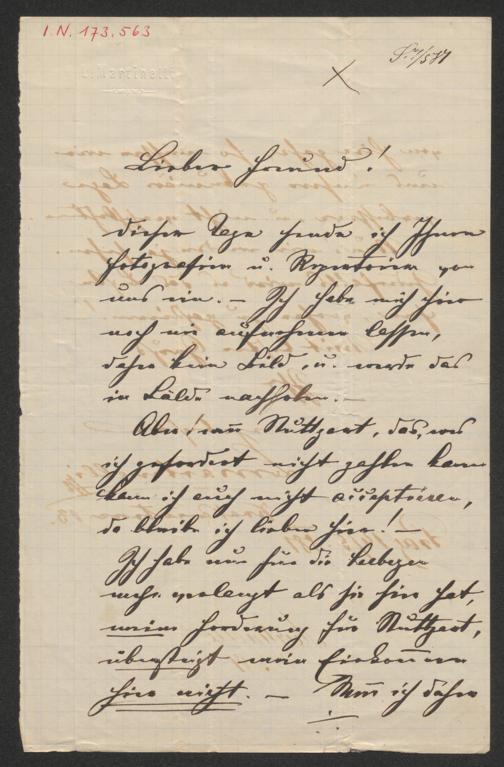 I.N. 173.563
Martinelli
Lieber Freund!
dieser Tage sende ich Ihnen
Fotografien u. Repertoire von
uns ein. – Ich habe mich hier
noch nie aufnehmen lassen,
daher kein Bild, u. werde das
in Bälde nachholen. –
Aber! wenn Stuttgart, das, was
ich gefordert nicht zahlen kann
kann ich auch nicht acceptieren,
da bleibe ich lieber hier! –
Ich habe nur für die
mehr verlangt als sie hier hat,
meine Forderung für Stuttgart,
übersteigt mein Einkommen
hier nicht. – Wenn ich daher